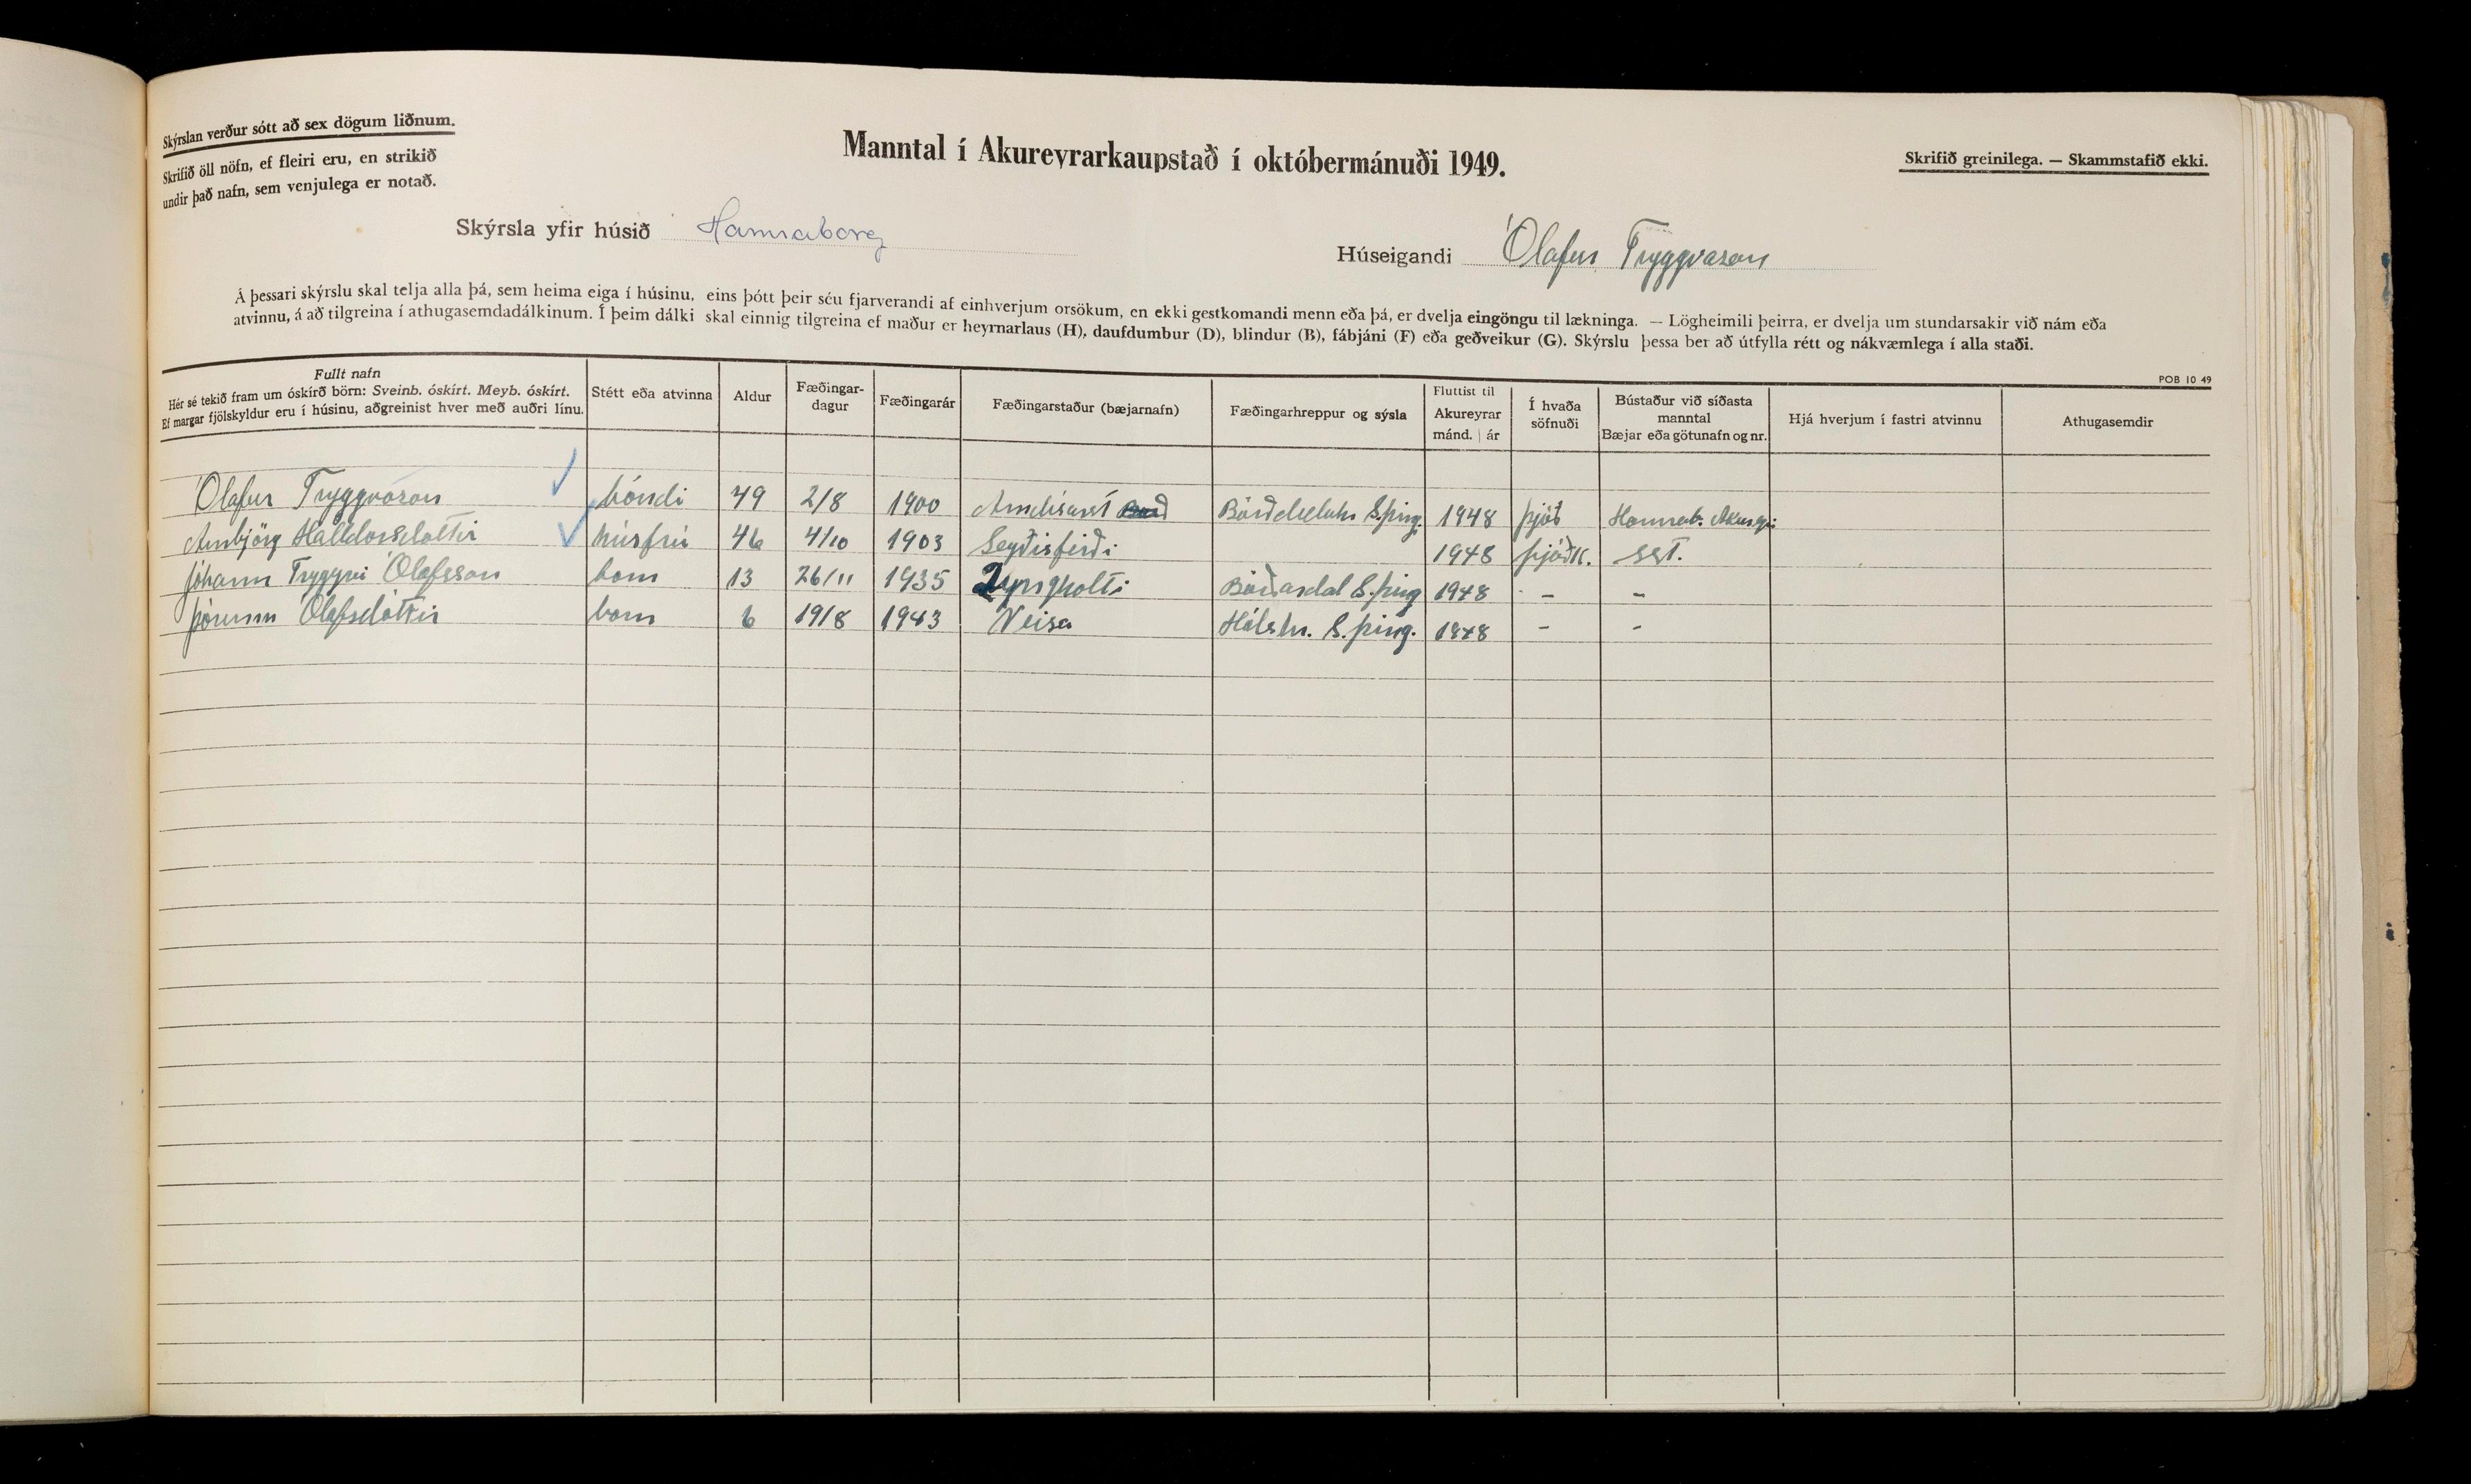 Skýrslan verður sótt að sex dögum liðnum.
Skrifið öll nöfn, ef fleiri eru, en strikið
undir það nafn, sem venjulega er notað.
Manntal í Akureyrarkaupstað í októbermánuði 1949.
Skrifið greinilega. — Skammstafið ekki.
Skýrsla yfir húsið Hamraborg
Húseigandi Ólafur Tryggvason
Á þessari skýrslu skal telja alla þá, sem heima eiga í húsinu, eins þótt þeir séu fjarverandi af einhverjum orsökum, en ekki gestkomandi menn eða þá, er dvelja eingöngu til lækninga. — Lögheimili þeirra, er dvelja um stundarsakir við nám eða
atvinnu, á að tilgreina í athugasemdadálkinum. Í þeim dálki skal einnig tilgreina ef maður er heyrnarlaus (H), daufdumbur (D), blindur (B), fábjáni (F) eða geðveikur (G). Skýrslu þessa ber að útfylla rétt og nákvæmlega í alla staði.
POB 10 49
Fullt nafn
Hér sé tekið fram um óskírð börn: Sveinb. óskírt. Meyb. óskírt.
Ef margar fjölskyldur eru í húsinu, aðgreinist hver með auðri línu.
Stétt eða atvinna
Aldur
Fæðingar-
dagur
Fæðingarár
Fæðingarstaður (bæjarnafn)
Fæðingarhreppur og sýsla
Fluttist til
Akureyrar
mánd. | ár
Í hvaða
söfnuði
Bústaður við síðasta
manntal
Bæjar eða götunafn og nr.
Hjá hverjum í fastri atvinnu
Athugasemdir
Ólafur Tryggvason bóndi 49 2/8 1900 S.þing. 1948 þjóð Hamrab. Akureyri
Arnbjörg Halldórsdóttir húsfrú 46 4/10 1903 Seyðisfirði 1948 þjóðk. sst.
Jóhann Tryggvi Ólafsson barn 13 26/11 1935 Bárðardal S.þing 1948 - -
Þórunn Ólafsdóttir barn 6 19/8 1943 Veisa Hálshr. S.þing. 1948 - -